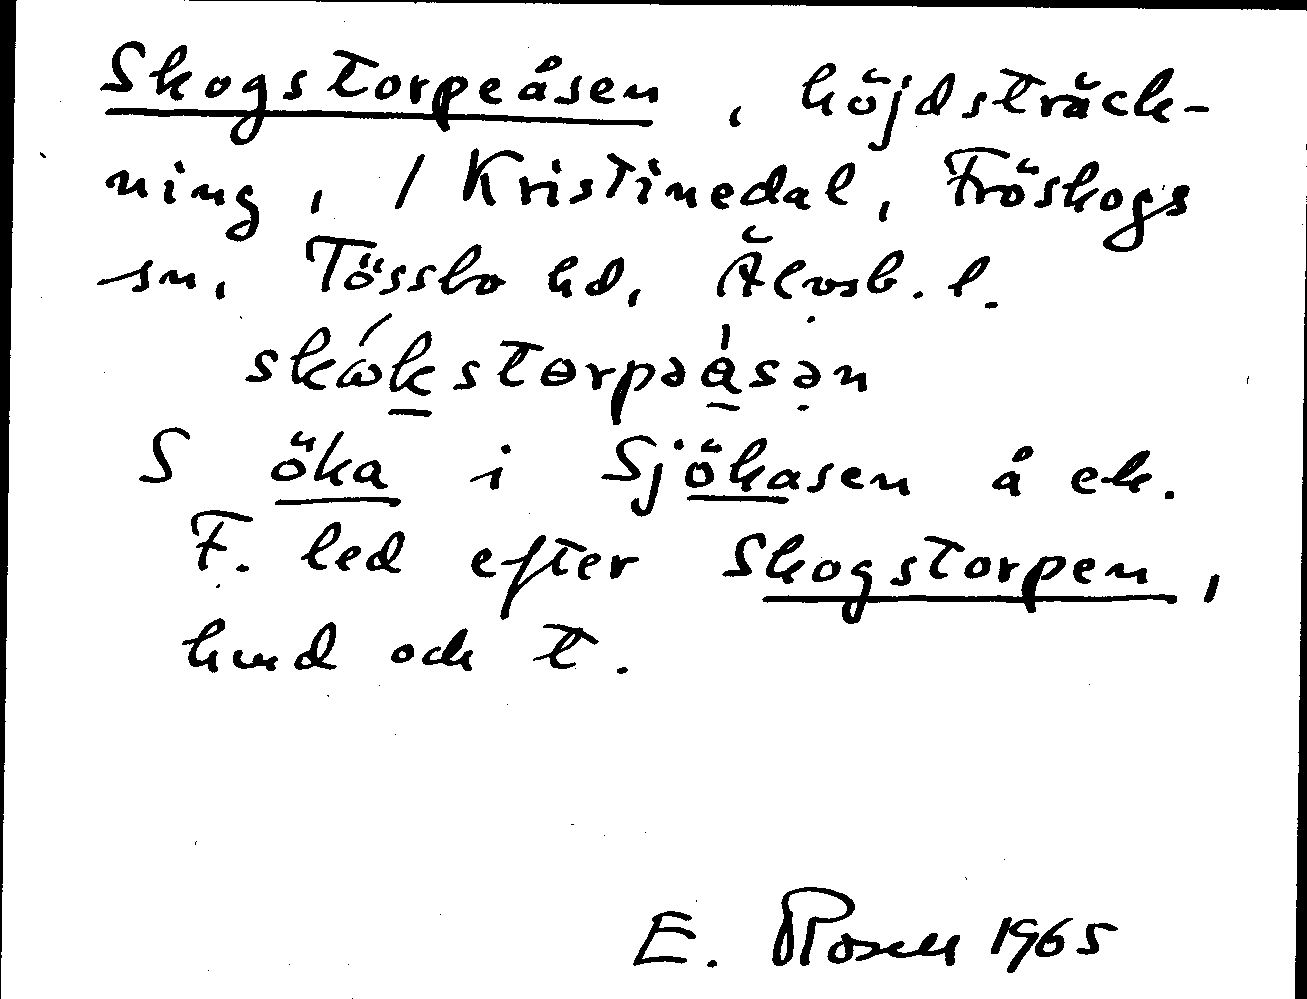 Skogstorpeåsen, höjdsträck-
ning, / Kristinedal, Fröskogs
sn, Tössbo hd, Älvsb. l.
skωkstɵrpəåsən
S öka i Sjökasen å ek.
F. led efter Skogstorpen,
hmd och t.
E. Rosell 1965